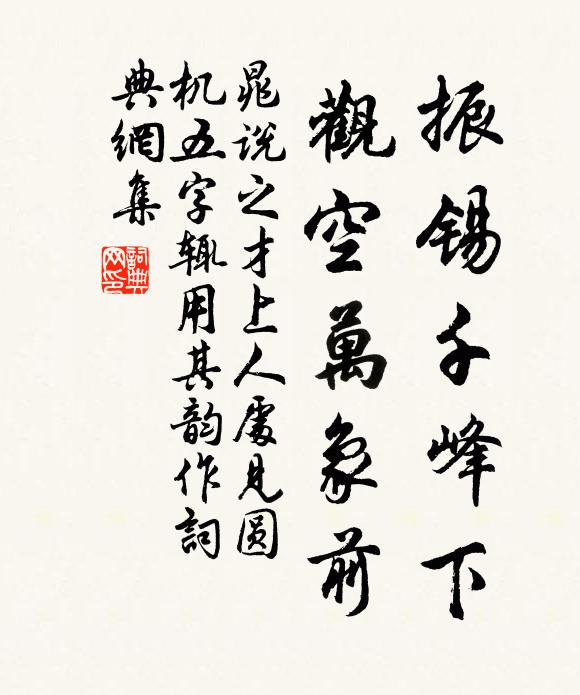 振锡千峰下
觀空萬象前
晁说之才上人處見圆
机五字辄用其韵作詞
典網集
詞典
网印